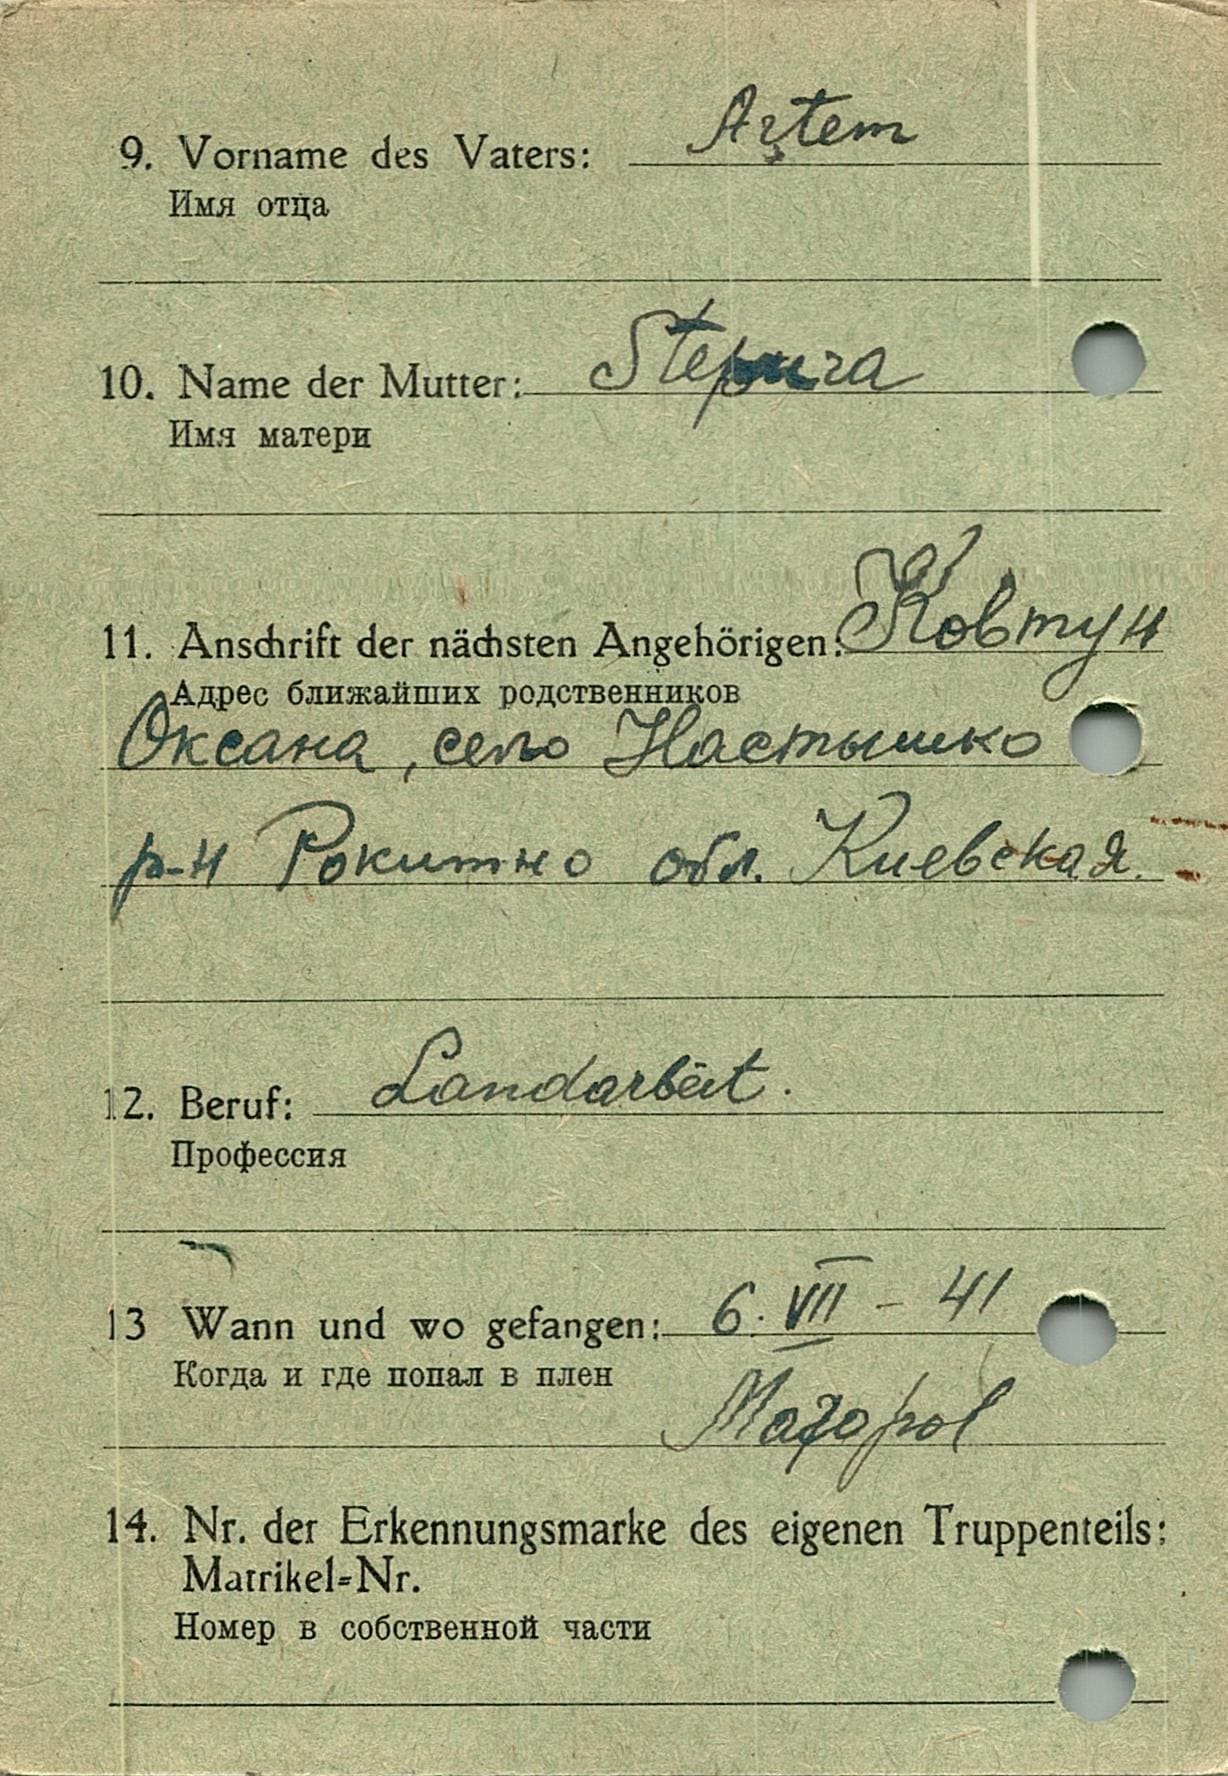 9. Vorname des Vaters: Artem
Имя отца
10. Name der Mutter:
Имя матери
11. Anschrift der nächsten Angehörigen: Ковтун
Адрес ближайших родственников
Оксана, село Настышко
р-н Рокитно обл. Киевская.
12. Beruf: Landarbeit.
Профессия
13 Wann und wo gefangen: 6. VII - 41
Когда и где попал в плен
14. Nr. der Erkennungsmarke des eigenen Truppenteils:
Matrikel=Nr.
Номер в собственной части